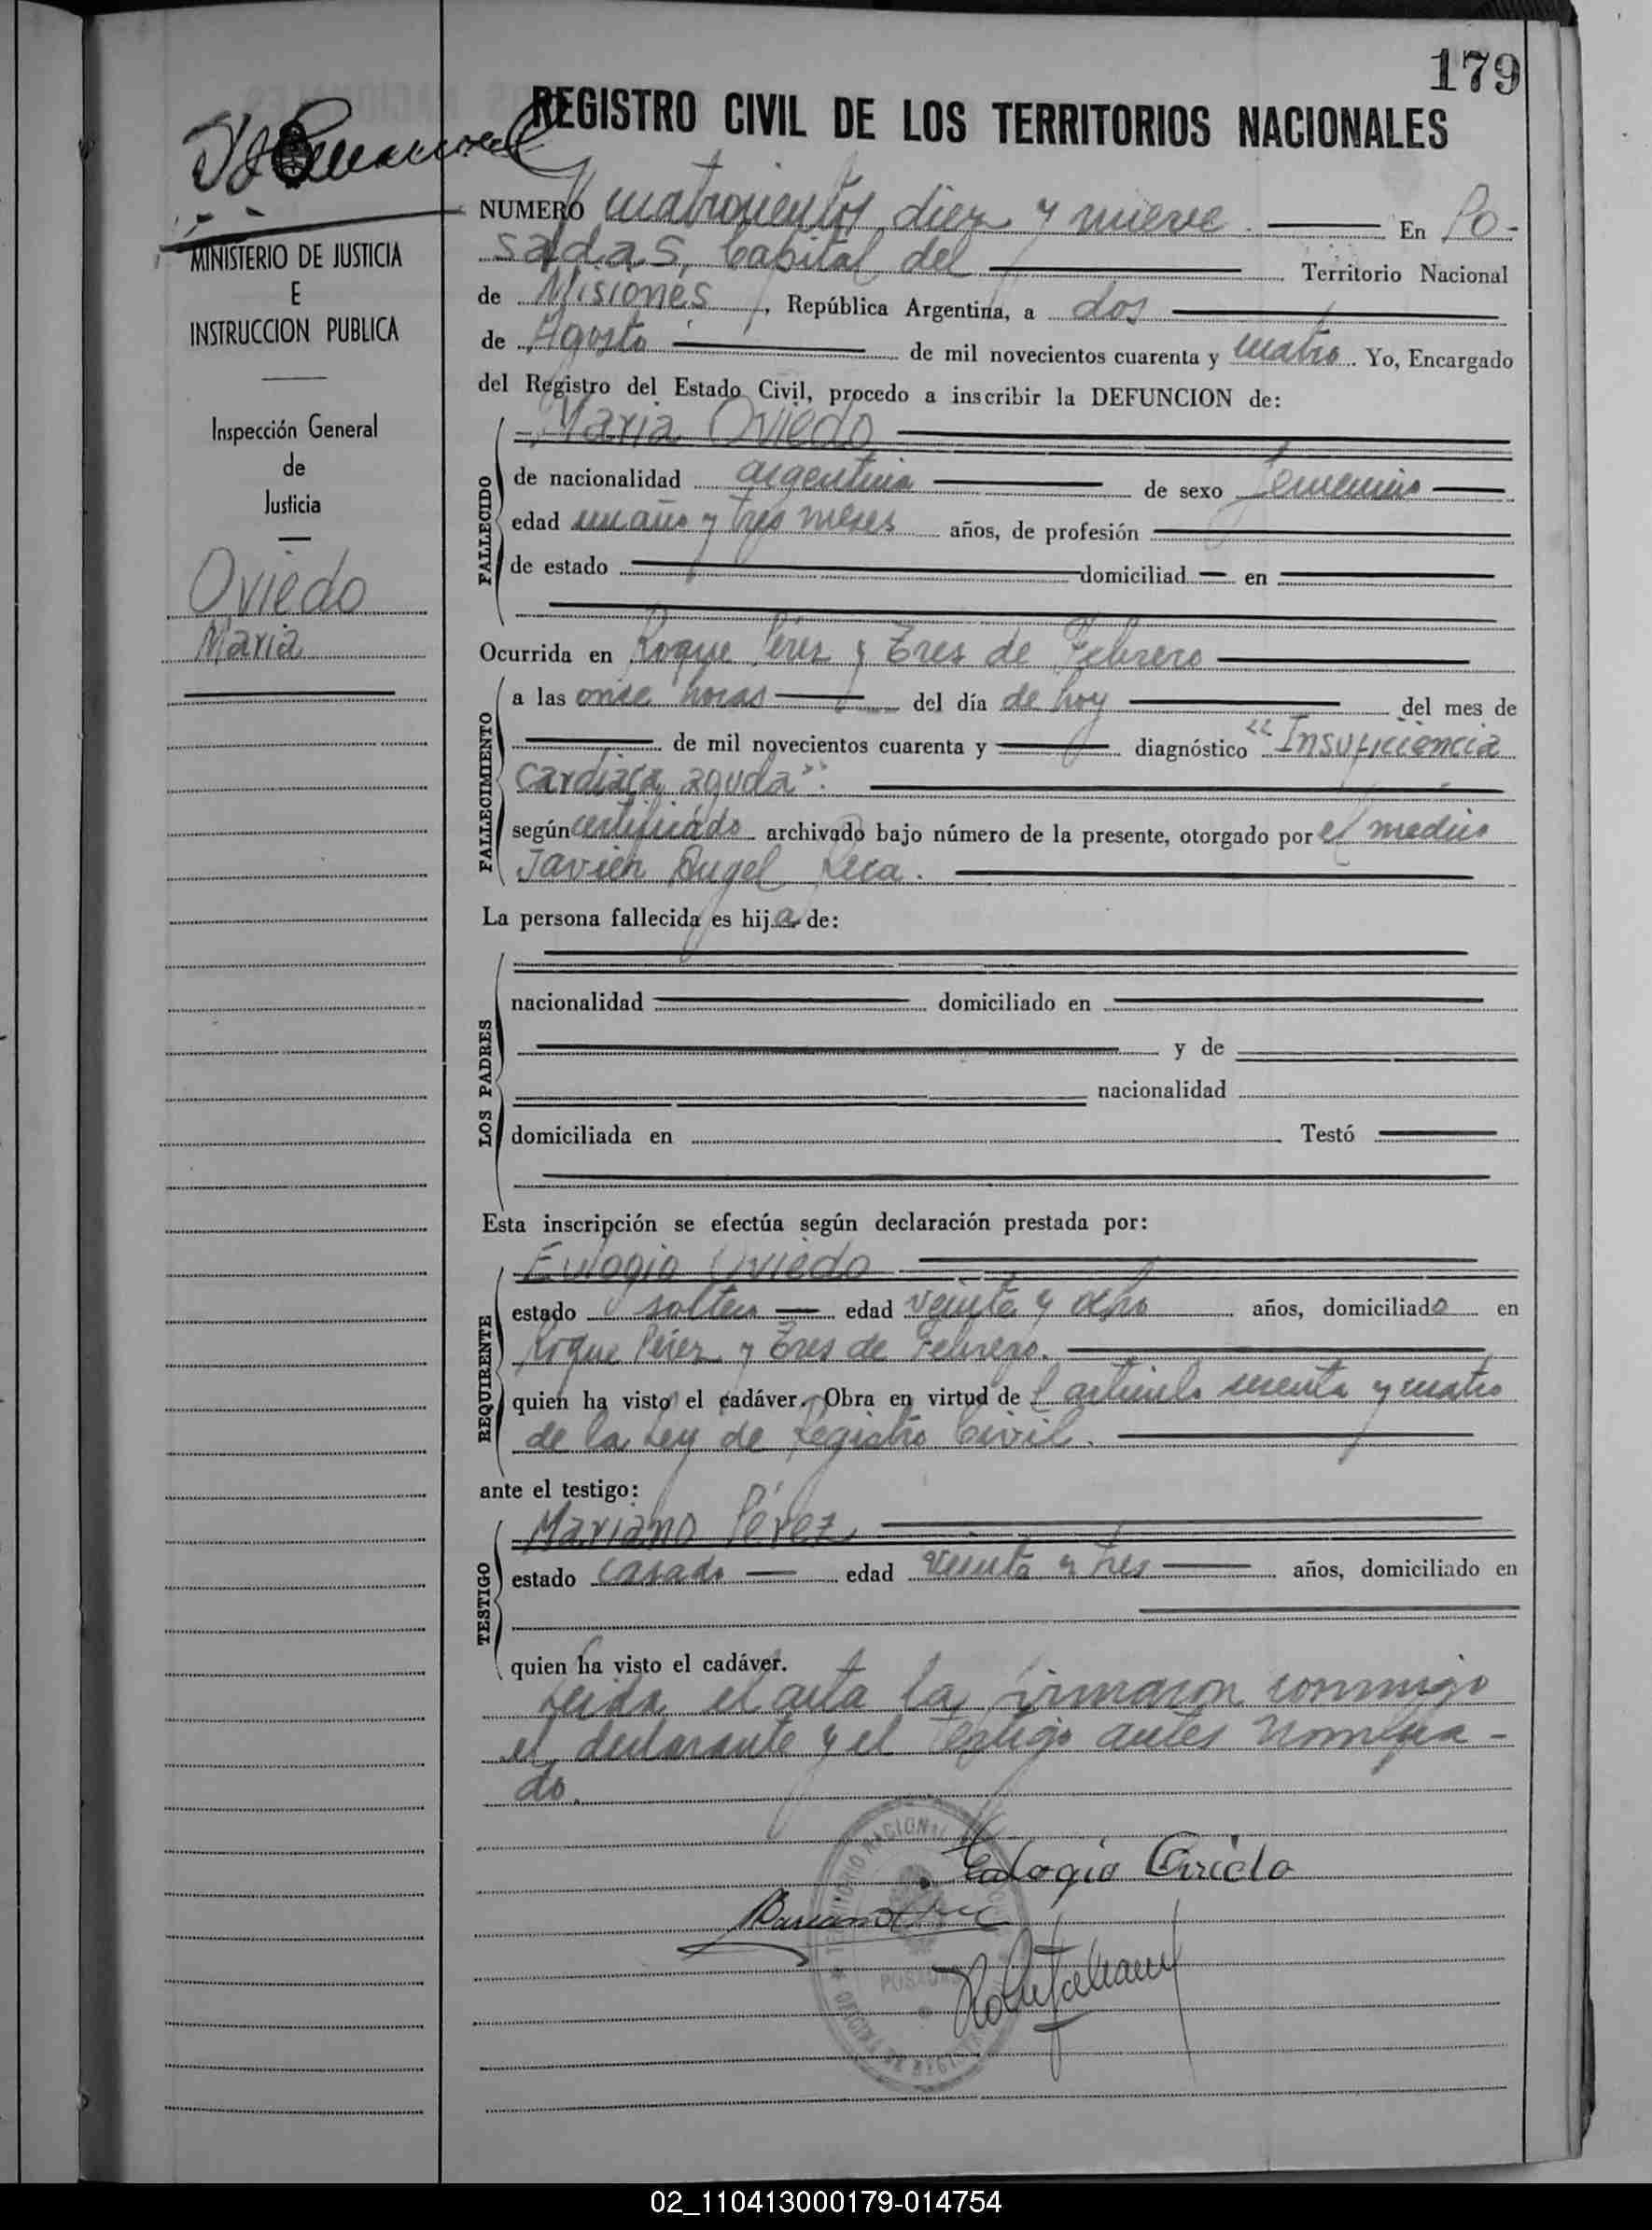 179
REGISTRO CIVIL DE LOS TERRITORIOS NACIONALES
MINISTERIO DE JUSTICIA
E
INSTRUCCION PUBLICA
Inspección General
de
Justicia
Oviedo
Maria
NUMERO cuatrocientos diez y nueve En Po-
sadas, Capital del Territorio Nacional
de Misiones, República Argentina, a dos
de Agosto de mil novecientos cuarenta y cuatro. Yo, Encargado
del Registro del Estado Civil, procedo a inscribir la DEFUNCION de:
Maria Oviedo
FALLECIDO
de nacionalidad argentina de sexo femenino
edad un año y tres meses años, de profesión
de estado domiciliad en
Ocurrida en Roque Pérez y Tres de Febrero
FALLECIMIENTO
a las once horas del día de hoy del mes de
de mil novecientos cuarenta y diagnóstico "Insuficiencia
cardiaca aguda".
según certificado archivado bajo número de la presente, otorgado por el medico
Javier Angel
La persona fallecida es hija de:
LOS PADRES
nacionalidad domiciliado en
y de
nacionalidad
domiciliada en Testó
Esta inscripción se efectúa según declaración prestada por:
Eulogio Oviedo
REQUIRENTE
estado soltero edad veinte y ocho años, domiciliado en
Roque Pérez y Tres de Febrero.
quien ha visto el cadáver. Obra en virtud del articulo sesenta y cuatro
de la Ley de Registro Civil.
ante el testigo:
Mariano Pérez
TESTIGO
estado casado edad veinte y tres años, domiciliado en
quien ha visto el cadáver.
Leida el acta la firmaron conmigo
el declarante y el testigo antes nombra-
do.
Eulogio Oviedo
POSADAS
02_110413000179-014754